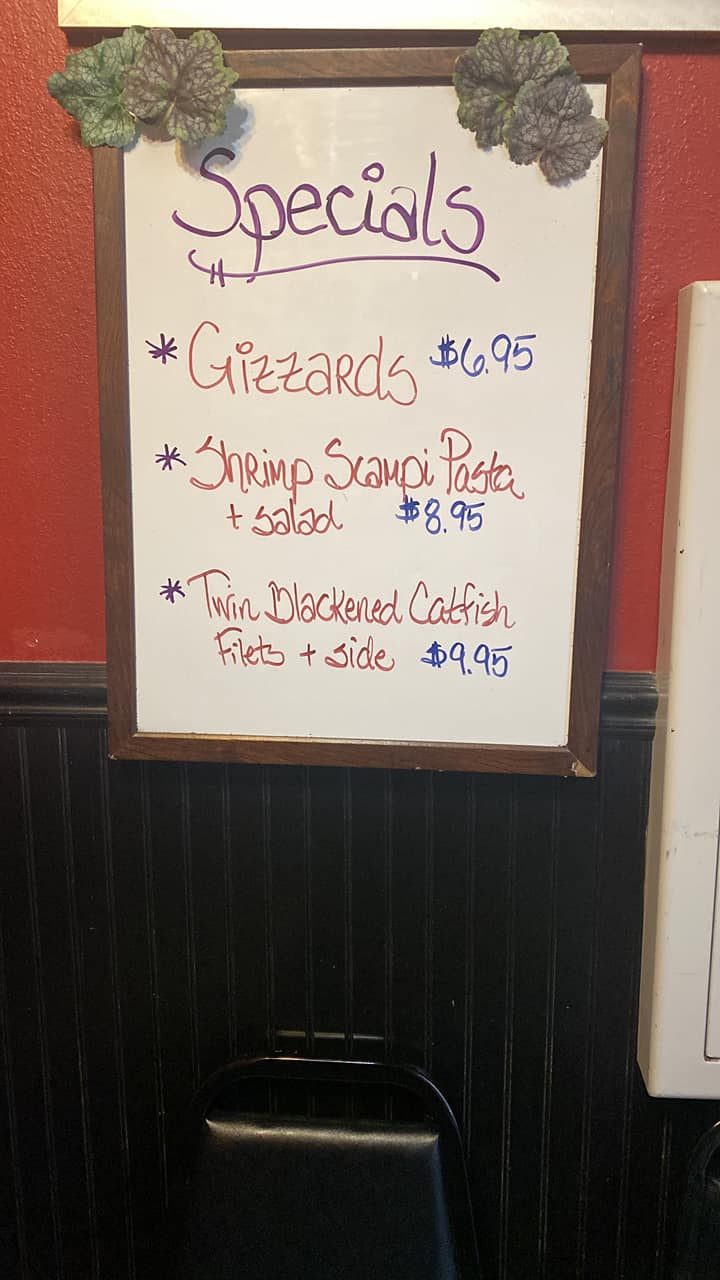 Specials
* Gizzards $6.95
* Shrimp Scampi Pasta
+ salad $8.95
* Twin Blackened Catfish
Filets + side $9.95